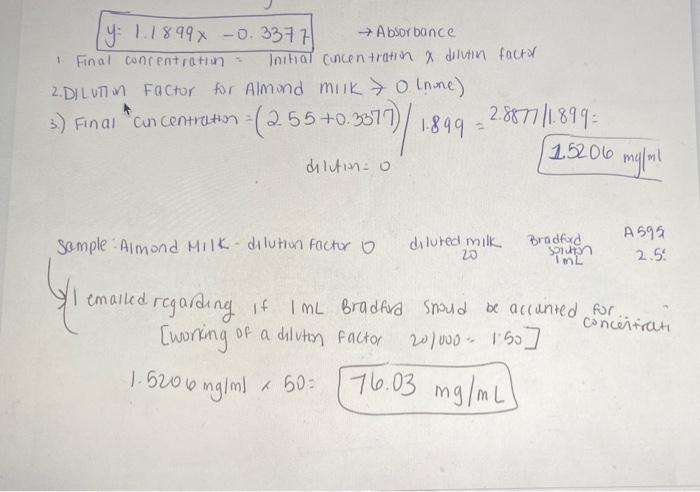 y= 1.1899x - 0.3377 → Absorbance
1. Final concentration = Initial concentration x dilutin factor
2. DILUTION Factor for Almond milk → 0 (none)
3.) Final concentration = (2.55+0.3377) / 1.899 = 2.8877/1.899=
dilution= 0
1.5206 mg/ml
Sample: Almond Milk - dilution factor 0 diluted milk Bradford A595
20 solution 2.5
1mL
I emailed regarding if 1mL Bradford should be accounted for
concentrati
[working of a dilution factor 20/1000 ~ 1:50]
1.5206 mg/ml x 50= 76.03 mg/mL